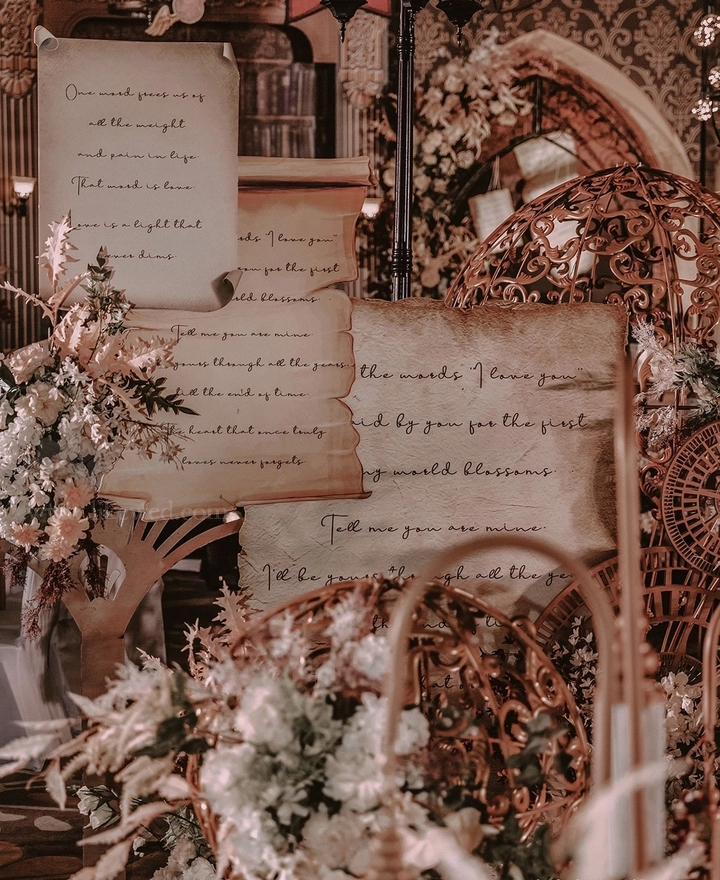 One word frees us of
all the weight
and pain in life
That word is love
Love is a light that
never dims.
"I love you"
you for the first
blossoms.
Tell me you are mine.
yours through all the years.
till the end of time
The heart that once truly
loves never forgets
the words "I love you"
by you for the first
my world blossoms.
Tell me you are mine.
I'll be yours through all the
the end of